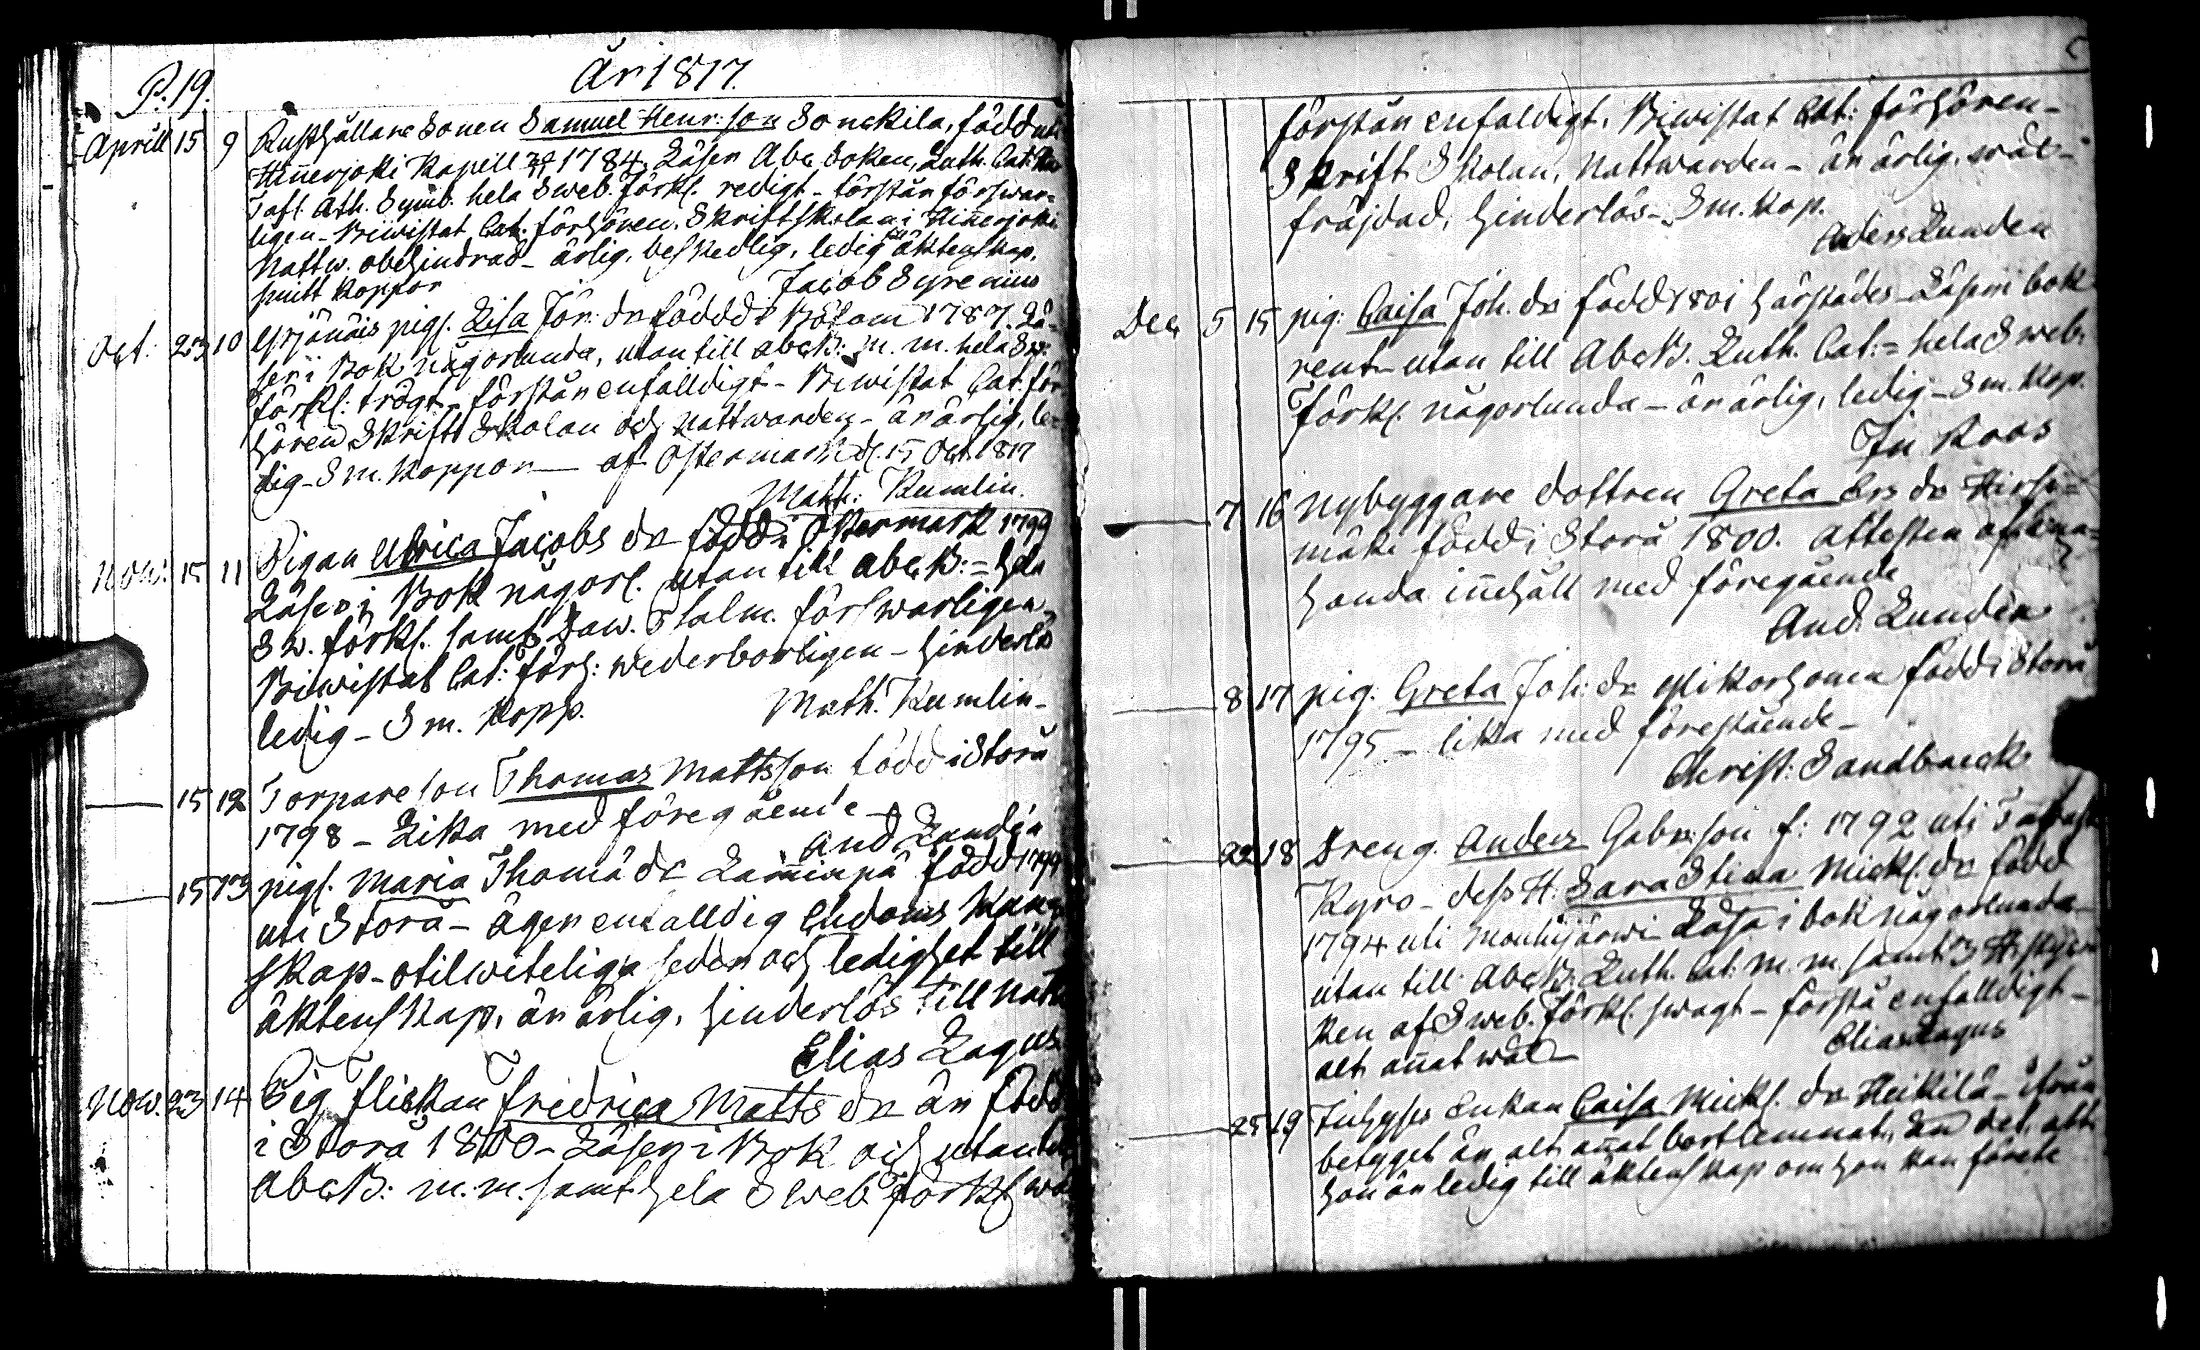 P. 19.
År 1817.
Aprill 15 9 Rusthållare Sonen Samuel Henr:son Sonckila, född uti
Hinnerjoki Kapell 1784. Läser Abc boken, Luth. Cat:
Tafl. Ath. Symb. hela Sweb. förkl. redigt - förstår förswar-
ligen - Biwistat Cat. förhören. Skriftskolan i Hinnerjoki
Nattw. obehindrad - ärlig, beskedlig, ledig till äktenskap.
haft koppor Jacob Syrenius
Oct: 23 10 pigs. Lisa Jör. dr född i Bötom 1787. Lä-
ser i Bok någorlunda, utan till abcB: m. m. hela Sw.
förkl: trögt - förstår enfalldigt - Biwistat Cat: för
hören Skrift Skolan och Nattwarden - är ärlig, le-
dig - S m. Koppor - af Östermark d. 15 Oct. 1817
Math: Kumlin.
Now: 15 11 Pigan Ulrica Jacobs dr född i Östermark 1799
Läser i Bok någorl. utan till abcB: = hela
Sw. förkl. samt Daw. Psalm. förswarligen -
Biwistat Cat: förh: wederborligen - hinderlös
ledig - S m. Kopp. Math. Kumlin -
15 12 Torpare son Thomas Mattsson född i Storå
1798 - Lika med föregående -
And Lundén
15 13 pigs. Maria Thomæ dr född 1794
uti Storå - äger enfalldig Chdoms Kun
skap - otilwitelige seder och ledighet till
äktenskap, är ärlig, hinderlös till Natt
Elias Lagus.
Now. 23 14 Pig flickan Fredrica Matts dr är född
i Storå 1800 - Läser i Bok och utantill
AbcB: m. m. samt hela Sweb. förkl wäl
förstår enfaldigt, Biwistat Cat: förhören -
Skrift Skolan, Nattwarden - är ärlig, wäl -
fräjdad, hinderlös - S m. Kop.
Anders Lundén
Dec 5 15 pig: Caisa Joh. dr född 1801 härstädes - Läser i bok
rent - utan till AbcB. Luth. Cat: = hela Sweb.
Förkl. någorlunda - är ärlig, ledig - S m. Kop.
Jn Roos
7 16 Nybyggare dottren Greta Ers dr Hirsi=
mäki född i Storå 1800. Attesten af ena=
handa innehåll med föregående
And. Lundén
8 17 pig. Greta Joh: dr född i Storå
1795 - lika med förestående -
Christ: Sandbaeck
22 18 Dreng. Anders Gabr:son f: 1792 uti
Kyro - dess H: Sara Stina Mickl. dr född
1794 uti Mouhijärwi Läsa i bok någorlunda
utan till: AbcB: Luth. Cat: m. m. samt 3 H. styc
ken af Sweb. förkl. swagt - förstå enfalldigt -
alt annat wäl - Elias Lagus
25 19 Enkan Caisa Mickl. dr Heikilä - ifrån
betyget är alt annat bortlemnat, än det, att
hon är ledig till äktenskap om hon kan förete